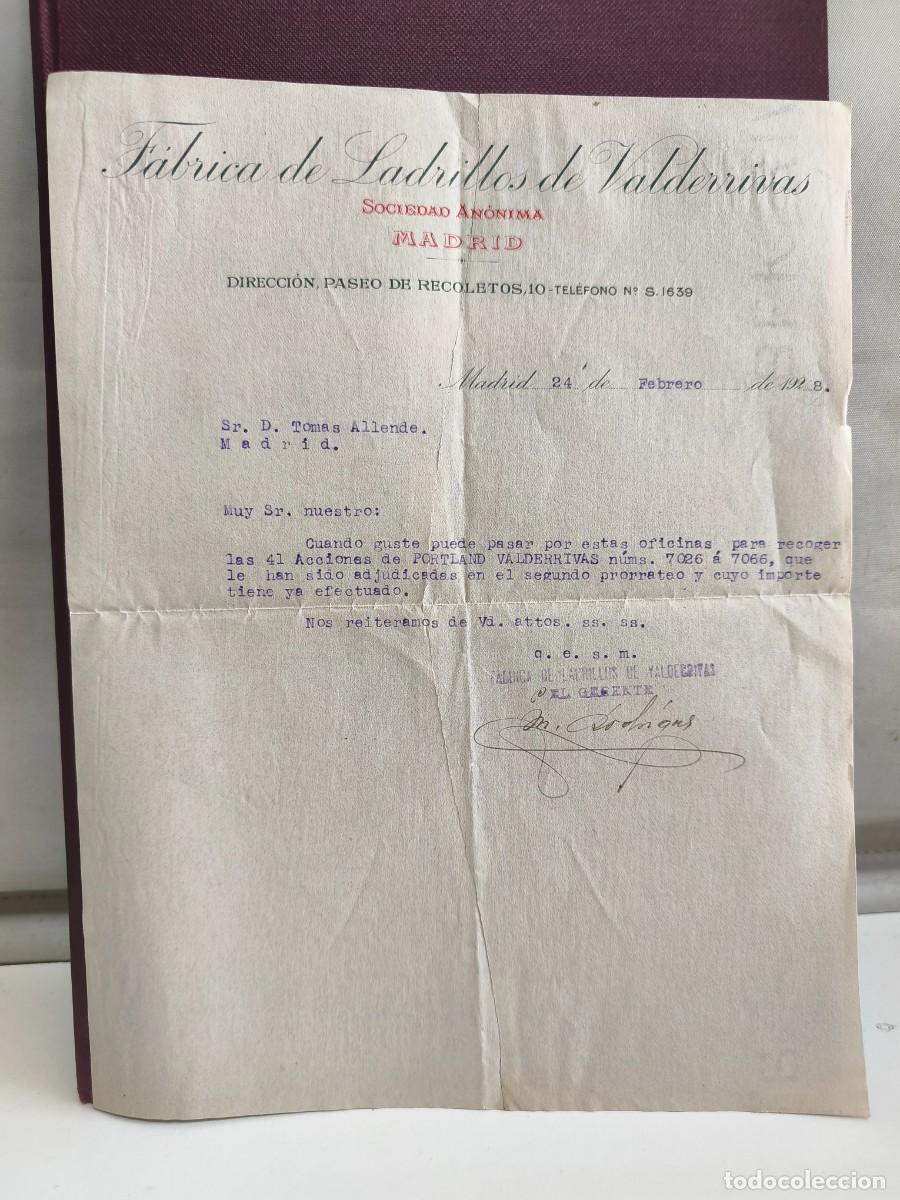 Fábrica de Ladrillos de Valderrivas
SOCIEDAD ANÓNIMA
MADRID
DIRECCIÓN, PASEO DE RECOLETOS, 10 - TELÉFONO Nº S. 1639
Madrid 24 de Febrero de 1928.
Sr. D. Tomas Allende.
M a d r i d.
Muy Sr. nuestro:
Cuando guste puede pasar por estas oficinas para recoger
las 41 Acciones de PORTLAND VALDERRIVAS núms. 7026 á 7066, que
le han sido adjudicadas en el segundo prorrateo y cuyo importe
tiene ya efectuado.
Nos reiteramos de Vd. attos. ss. ss.
q. e. s. m.
FABRICA DE LADRILLOS DE VALDERRIVAS
EL GERENTE
todocoleccion